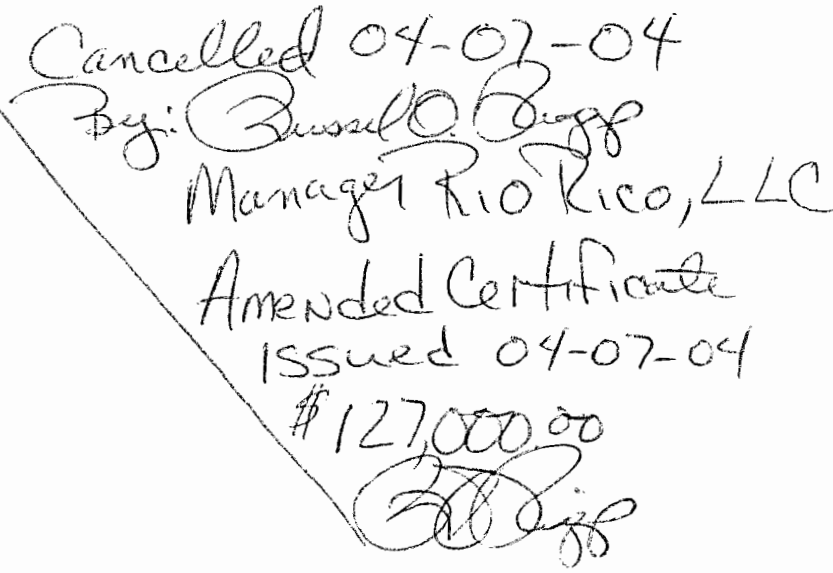 Cancelled 04-07-04
By: Russel O.
Manager Rio Rico, LLC
Amended Certificate
Issued 04-07-04
$127,000.00